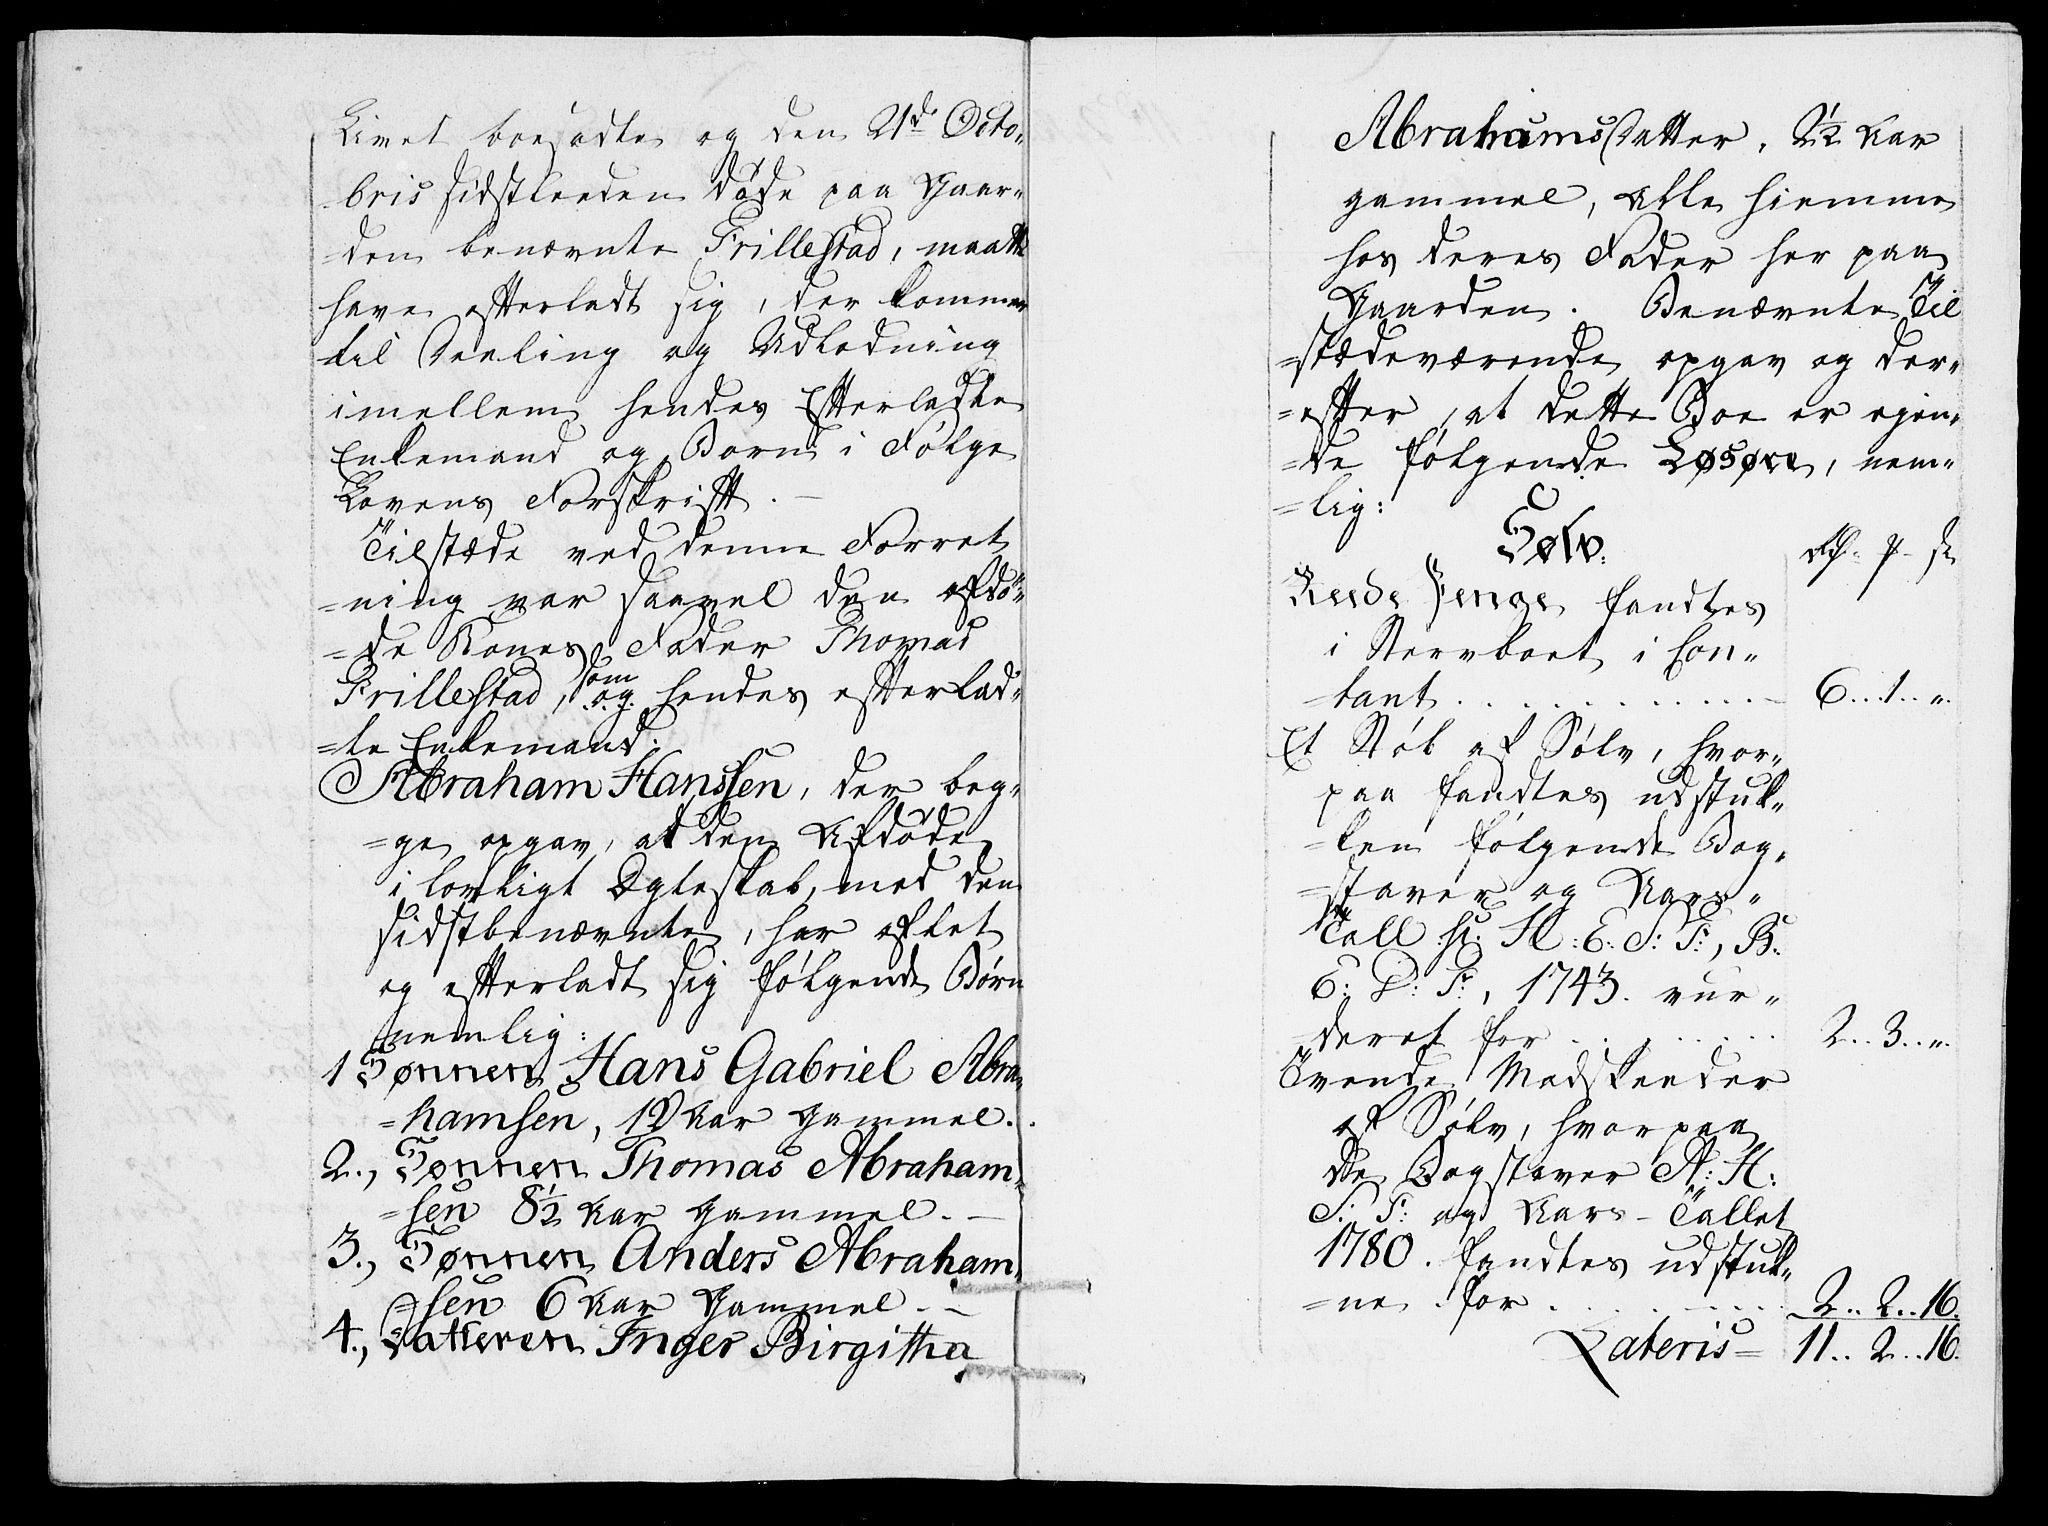 Livet boesadte og den 21de Octo-
bris sidstleeden døde paa Gaar-
=den benævnte Frillestad, maatte
have efterladt sig, der kommer
til Deeling og Udlodning
imellem hendes Efterladte
Enkemand og Børn i Følge
Lovens Forskrift. —
Tilstæde ved denne Forret
=ning var saavel den afdø-
=de Kones Fader Thomas
Frillestad, som og hendes efterlad-
=te Enkemand.
Abraham Hanssen, der beg-
=ge opgav, at den Afdøde
i lovligt Ægteskab, med den
sidstbenævnte, har aflet
og efterladt sig følgende Børn
nemlig:
1 Sønnen Hans Gabriel Abra-
=hamsen, 12 Aar Gammel.
2., Sønnen Thomas Abraham-
=sen 8½ Aar Gammel. —
3., Sønnen Anders Abraham-
=sen 6 Aar Gammel. —
4., Datteren Inger Birgitha
Abrahamsdatter, 2½ Aar
gammel, Alle hiemme
hos deres Fader her paa
Gaarden. Benævnte Til
=stædeværende opgav og der-
=efter, at dette Boe er ejen-
=de følgende Løsøre, nem-
=lig:
Sølv.
Reede Penge fandtes
i Stervboet i Con-
=tant . . . 6..1..".
Et Støb af Sølv, hvor-
paa fandtes udstuk-
=ken følgende Bog-
=staver og Aars-
Tall H: E: S: F:, B:
E: D: F:, 1743. vur-
=deret for . . . 2..3..".
Tvende Madskeeder
af Sølv, hvorpaa
de Bogstaver A: H:
S: F: og Aars-Tallet
1780. fandtes udstuk-
=ne for . . . 2..2..16.
Lateris = 11..2..16.